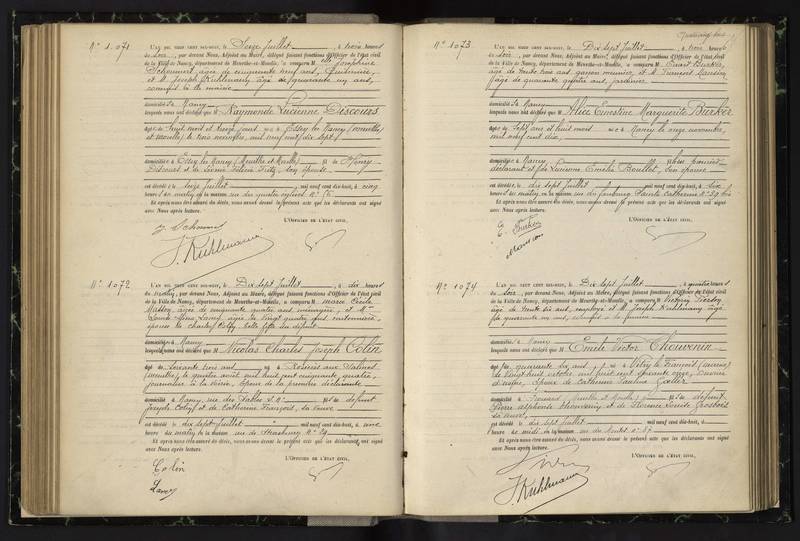 N° 1.071
L'AN MIL NEUF CENT DIX-HUIT, le Seize juillet, à trois heures
du soir, par devant Nous, Adjoint au Maire, délégué faisant fonctions d'Officier de l'état civil
de la Ville de Nancy, département de Meurthe-et-Moselle, a comparu M elle Joséphine
Schammel, âgée de cinquante neuf ans, 
et M Joseph Kuhlmann âgé de quarante un ans,
domicilié s à Nancy
lesquels nous ont déclaré que Raymonde Lucienne Discours
âgée de huit mois et treize jours née à Essey les Nancy (Meurthe
et Moselle) le trois novembre, mil neuf cent dix sept
domiciliée à Essey les Nancy (Meurthe et Moselle) fille de Henry
Discours et de son épouse
est décédée le seize juillet mil neuf cent dix-huit, à cinq
heures du matin en la maison rue des quatre églises N°
Et après nous être assuré du décès, nous avons dressé le présent acte que les déclarants ont signé
avec Nous après lecture.
L'OFFICIER DE L'ÉTAT CIVIL,
J. Kuhlmann
N° 1072
L'AN MIL NEUF CENT DIX-HUIT, le Dix sept juillet, à dix heures
du matin, par devant Nous, Adjoint au Maire, délégué faisant fonctions d'Officier de l'état civil
de la Ville de Nancy, département de Meurthe-et-Moselle, a comparu M marie Cécile
âgée de cinquante quatre ans ménagère, et M
âgée de vingt quatre ans cartonnière,
épouse de Charles Colin, belle fille du défunt
domicilié s à Nancy
lesquels nous ont déclaré que M Nicolas Charles Joseph Colin
âgé de soixante trois ans né à Rosières aux Salines
(Meurthe), le quatre août mil huit cent cinquante quatre,
journalier à la voirie, époux de la première déclarante
domicilié à Nancy, rue des Sables fils de défunt
Joseph Colin et de Catherine François, sa veuve
est décédé le dix sept juillet mil neuf cent dix-huit, à une
heure du matin en la maison rue de Strasbourg N°
Et après nous être assuré du décès, nous avons dressé le présent acte que les déclarants ont signé
avec Nous après lecture.
L'OFFICIER DE L'ÉTAT CIVIL,
Colin
N° 1073
L'AN MIL NEUF CENT DIX-HUIT, le Dix sept juillet, à trois heures
du soir, par devant Nous, Adjoint au Maire, délégué faisant fonctions d'Officier de l'état civil
de la Ville de Nancy, département de Meurthe-et-Moselle, a comparu M Burker,
âgé de trente trois ans, garçon meunier, et M François
âgé de quarante quatre ans, jardinier
domicilié s à Nancy
lesquels nous ont déclaré que M Alice Ernestine Marguerite Burker
âgée de sept ans et huit mois née à Nancy le onze novembre,
mil neuf cent dix
domiciliée à Nancy fille du premier
déclarant et de Lucienne Emélie Bouillet, son épouse
est décédée le dix sept juillet mil neuf cent dix-huit, à six
heures du matin en la maison rue du faubourg Sainte Catherine N° 39 bis
Et après nous être assuré du décès, nous avons dressé le présent acte que les déclarants ont signé
avec Nous après lecture.
L'OFFICIER DE L'ÉTAT CIVIL,
E. Burker
N° 1074
L'AN MIL NEUF CENT DIX-HUIT, le Dix sept juillet, à quatre heures
du soir, par devant Nous, Adjoint au Maire, délégué faisant fonctions d'Officier de l'état civil
de la Ville de Nancy, département de Meurthe-et-Moselle, a comparu M Victorin
âgé de trente six ans, employé et M Joseph Kuhlmann âgé
de quarante un ans,
domicilié s à Nancy
lesquels nous ont déclaré que M Emile Victor Thouvenin
âgé de quarante six ans né à Vitry le François (Marne)
le vingt huit octobre mil huit cent soixante onze,
d'usine, époux de Catherine Paulina
domicilié à Frouard (Meurthe et Moselle) fils de défunt
Pierre Alphonse Thouvenin et de Florence Louise Grosbois
sa veuve
est décédé le dix sept juillet mil neuf cent dix-huit, à
heure de midi en la maison rue du Montet N°
Et après nous être assuré du décès, nous avons dressé le présent acte que les déclarants ont signé
avec Nous après lecture.
L'OFFICIER DE L'ÉTAT CIVIL,
J. Kuhlmann